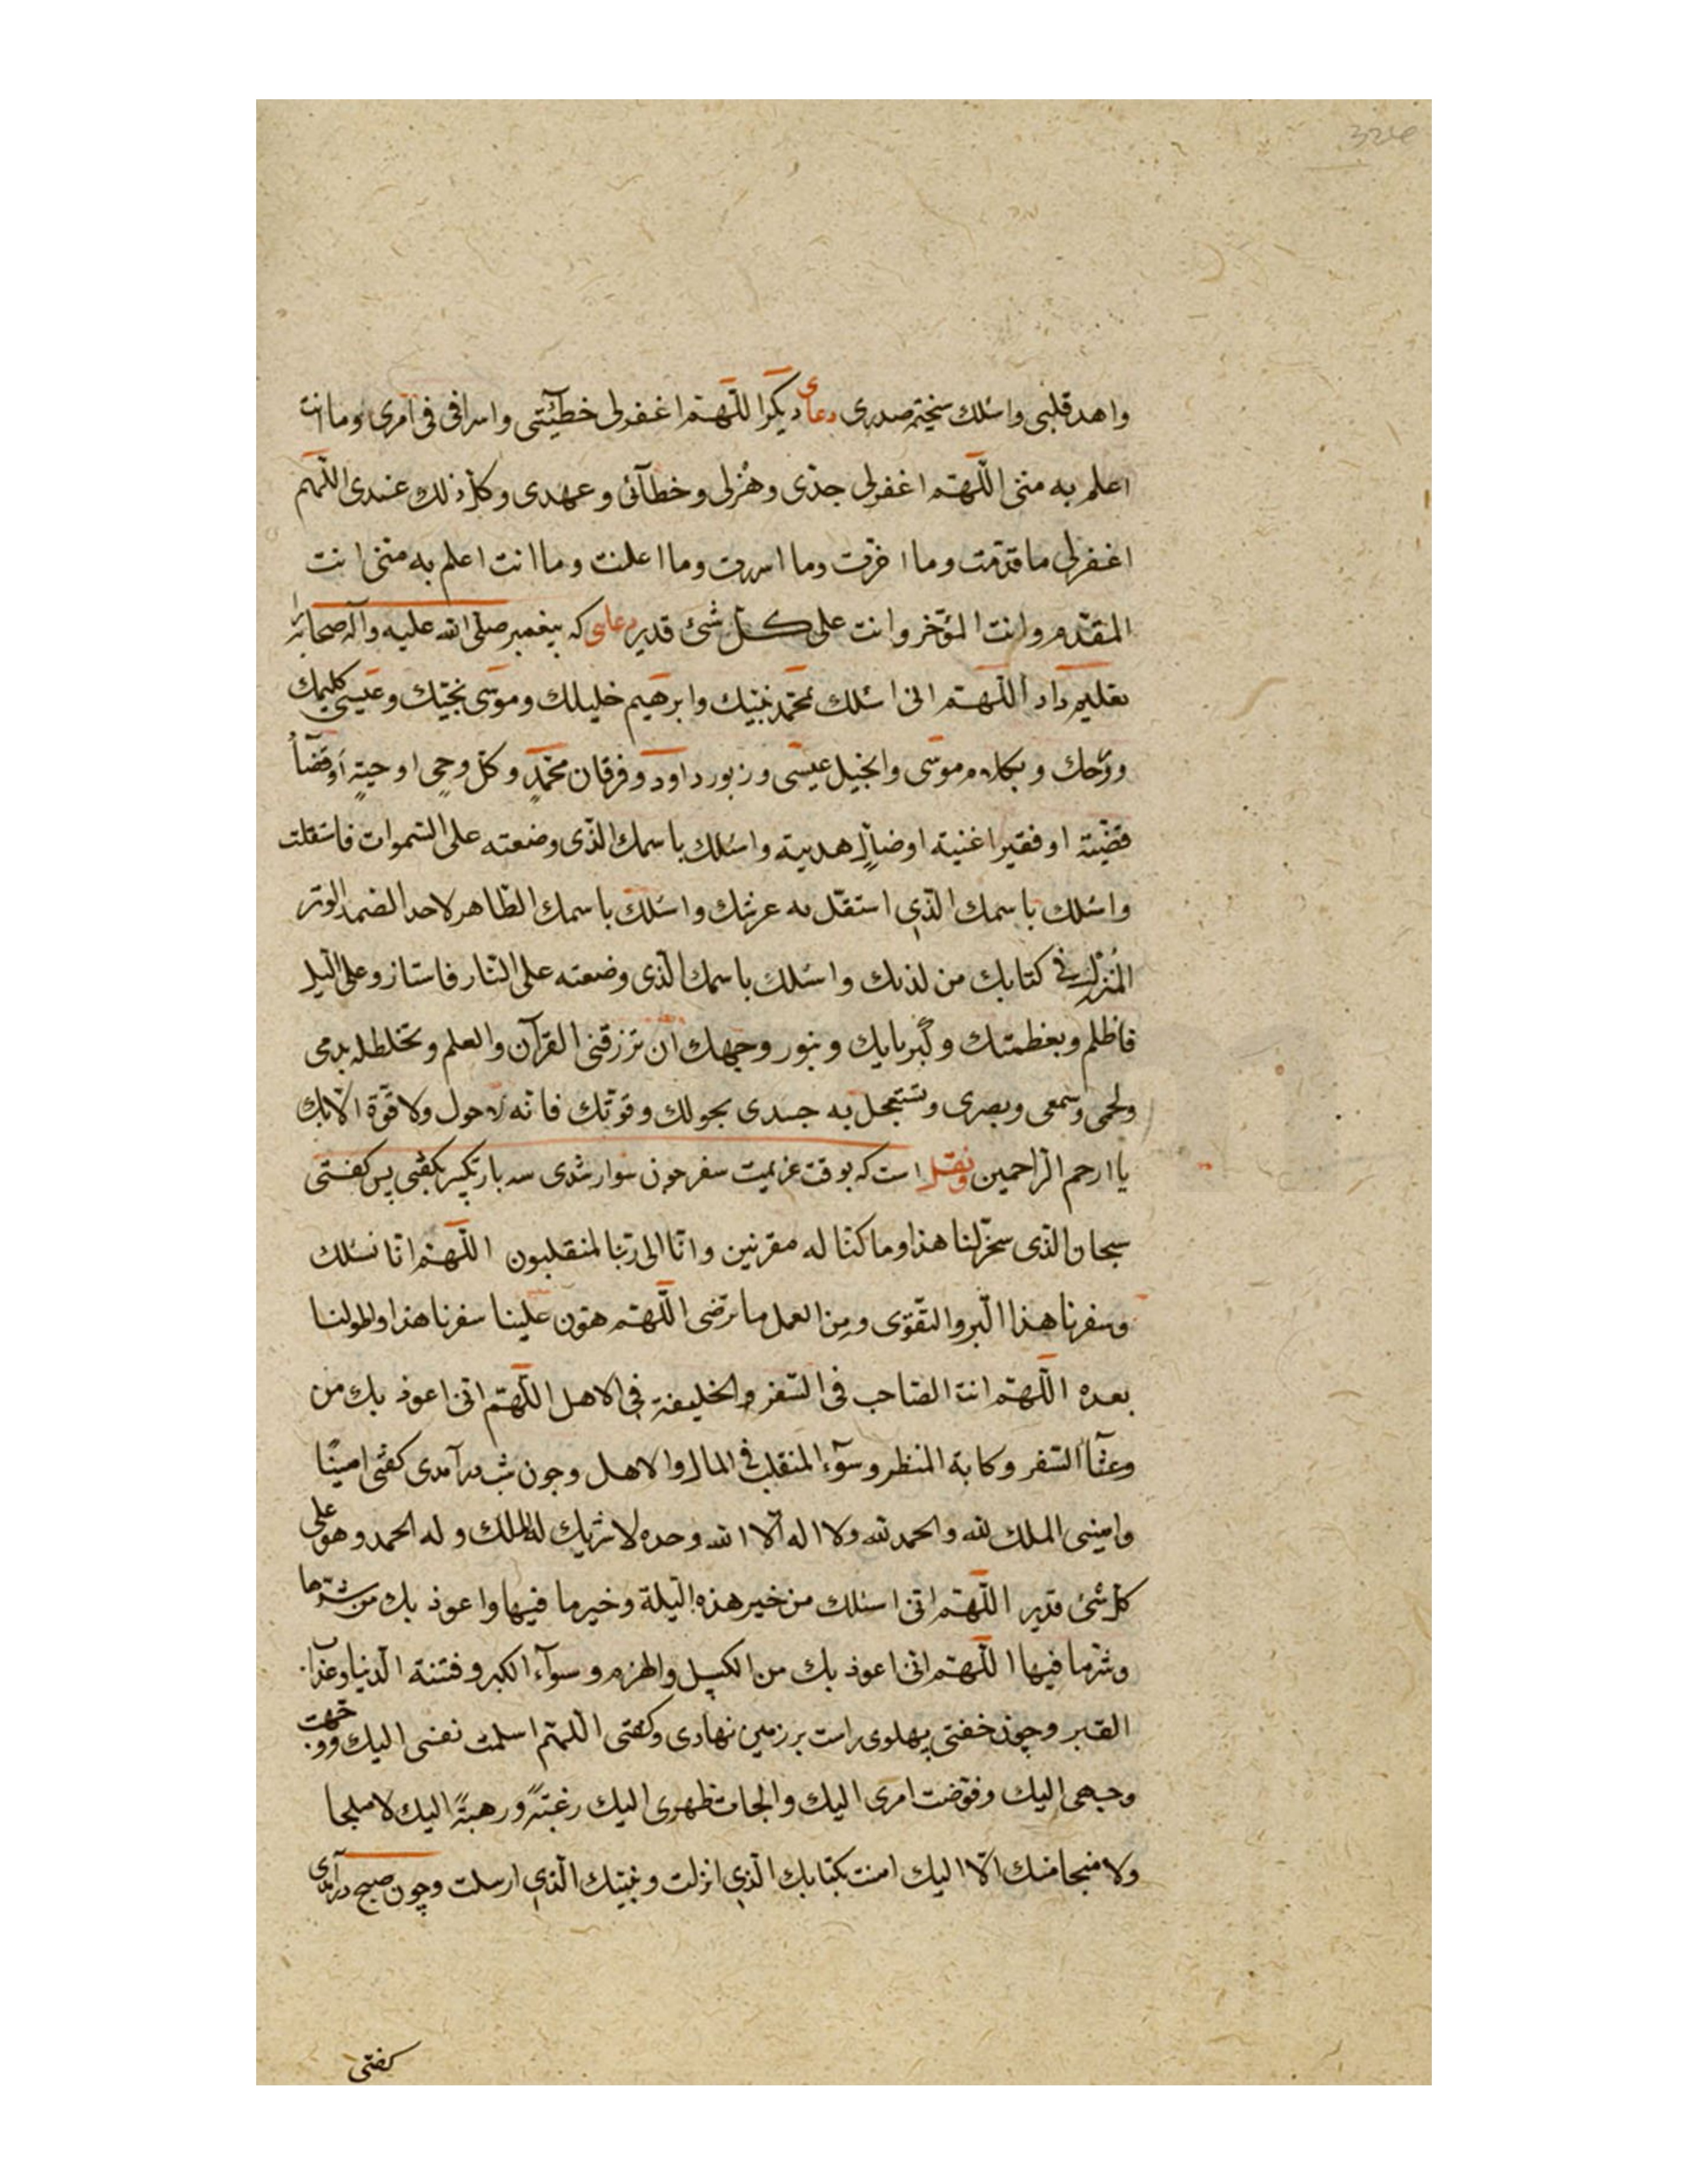 324
واهد قلبی واسٔلك سخیمة صدری دعای دیکر اللّهمّ اغفرلی خطیٓئتی واسرافی فی امری وما انت
اعلم به منی اللّهمّ اغفرلی جدّی وهزلی وخطآئی وعهدی وکلّ ذلك عندی اللّهم
اغفرلی ما قدّمت وما اخّرت وما اسررت وما اعلنت وما انت اعلم به منّی انت
المقدّم وانت المؤخّر وانت علی کلّ شئ قدیر دعایی که پیغمبر صلّی الله علیه وآله صحابه را
تعلیم داد اللّهمّ انی اسٔلك بمحمّد نبیّك وابرهیم خلیلك وموسی نجیّك وعیسی کلیمك
وروحك وبکلام موسی وانجیل عیسی وزبور داود وفرقان محمّدٍ وکلّ وحیٍ اوحیتهٖ اوقضآءٍ
قضیّته او فقیرا غنیته اوضالٍّ هدیته واسٔلك باسمك الّذی وضعته علی السّموات فاستقلت
واسٔلك باسمك الّذی استقلّ به عرشك واسٔلك باسمك الطّاهر لاحد الصّمد الوتر
المُنزل فی کتابك من لدنك واسٔلك باسمك الّذی وضعته علی النّار فاستنار وعلی الّیل
فاظلم وبعظمتك وکبریایك وبنور وجهك ان ترزقنی القرآن والعلم وتخلطله بدمی
ولحمی وسمعی وبصری وتستعجل به جسدی بحولك وقوّتك فانّه لا حول ولا قوّة الّا بك
یا ارحم الرّاحمین ونقل است که بوقت عزیمت سفر جون سوار شدی سه بار تکبیر بکفتی پس کفتی
سبحان الّذی سخّر لنا هذا وما کنّا له مقرنین وانّا الی ربّنا لمنقلبون اللّهمّ انّا نسٔلك
وسفرنا هذا الّبر والتّقوی ومن العمل ما ترضی اللّهمّ هوّن علینا سفرنا هذا واطولنا
بعده اللّهمّ انت الصّاحب فی السّفر والخلیفة فی الاهل اللّهمّ انّی اعوذ بك من
وعثآء السّفر وکابة المنظر وسوٓء المنقلب فی المال والاهل وجون شب درآمدی کفتی امینًا
وامینی الملك لله والحمد لله ولا اله الّا الله وحده لا شریك له الملك وله الحمد وهو علی
کلّ شئ قدیر اللّهمّ انّی اسٔلك من خیر هذه الّیلة وخیر ما فیها واعوذ بك من شرّها
وشرّ ما فیها اللّهمّ انّی اعوذ بك من الکسل والهرم وسوآء الکبر وفتنة الدّنیا وعذاب
القبر وچون خفتی پهلوی راست بر زمین نهادی وکفتی اللّهمّ اسلمت نفسی الیك ووجّهت
وجهی الیك وفوّضت امری الیك والجات ظهری الیك رغبةً ورهبةً الیك لا ملجا
ولا منجا منك الّا الیك امنت بکتابك الّذی انزلت ونبیّك الّذی ارسلت وچون صبح درآمدی
کفتی